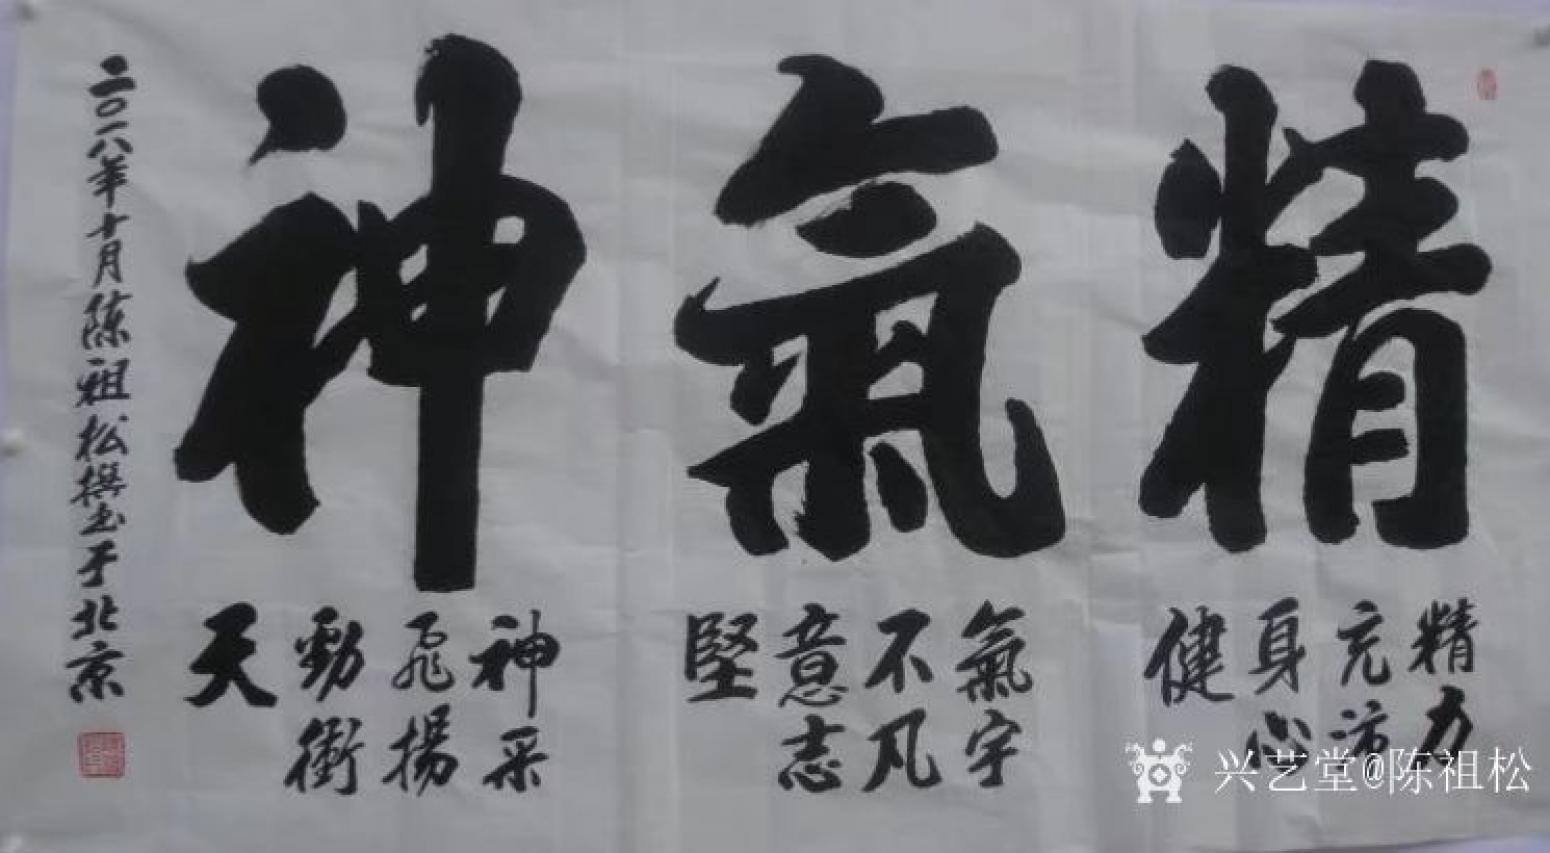 精氣神
精力
充沛
身心
健
氣宇
不凡
意志
堅
神采
飛揚
勁衝
天
二〇一八年十月陈祖松撰书于北京
兴艺堂@陈祖松